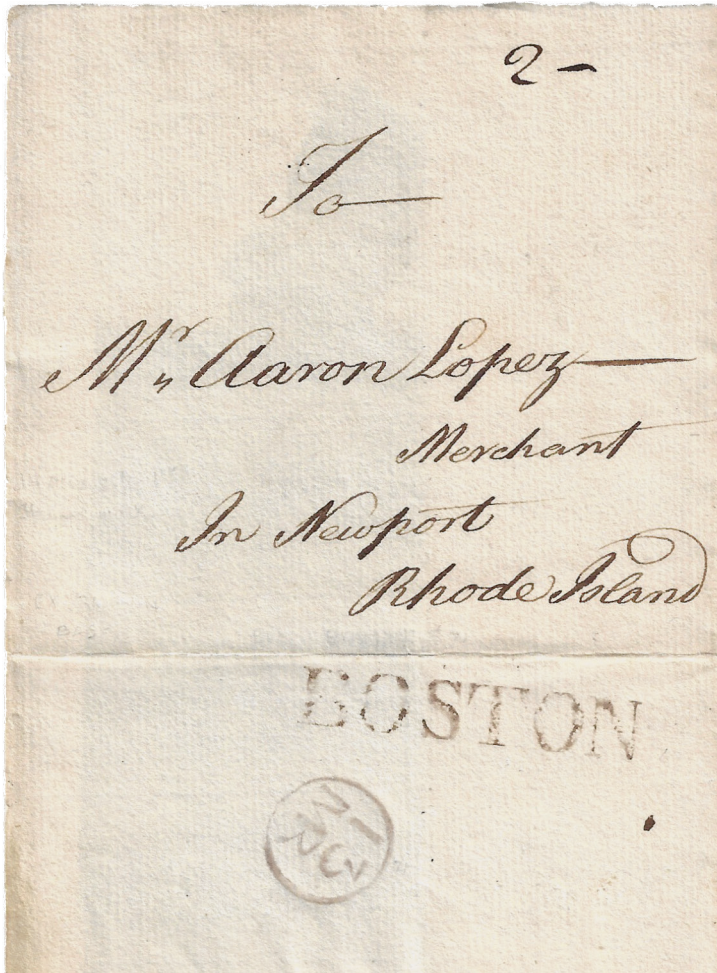 2 –
To
Mr Aaron Lopez
Merchant
In Newport
Rhode Island
BOSTON